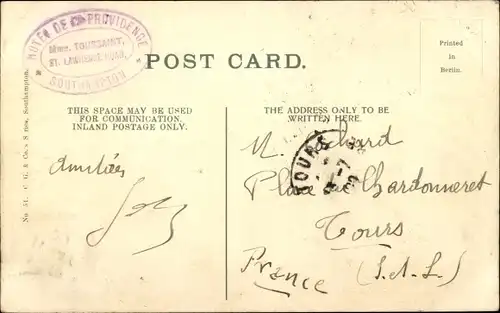 HOTEL DE LA PROVIDENCE
Mme. TOUSSAINT,
ST. LAWRENCE ROAD,
SOUTHAMPTON
POST CARD.
Printed
in
Berlin.
THIS SPACE MAY BE USED
FOR COMMUNICATION.
INLAND POSTAGE ONLY.
THE ADDRESS ONLY TO BE
WRITTEN HERE.
No. 51. C. G. & Co.'s Series, Southampton.
Amitiés
M.
TOURS
Place du Chardonneret
Tours
France (I.-et-L.)